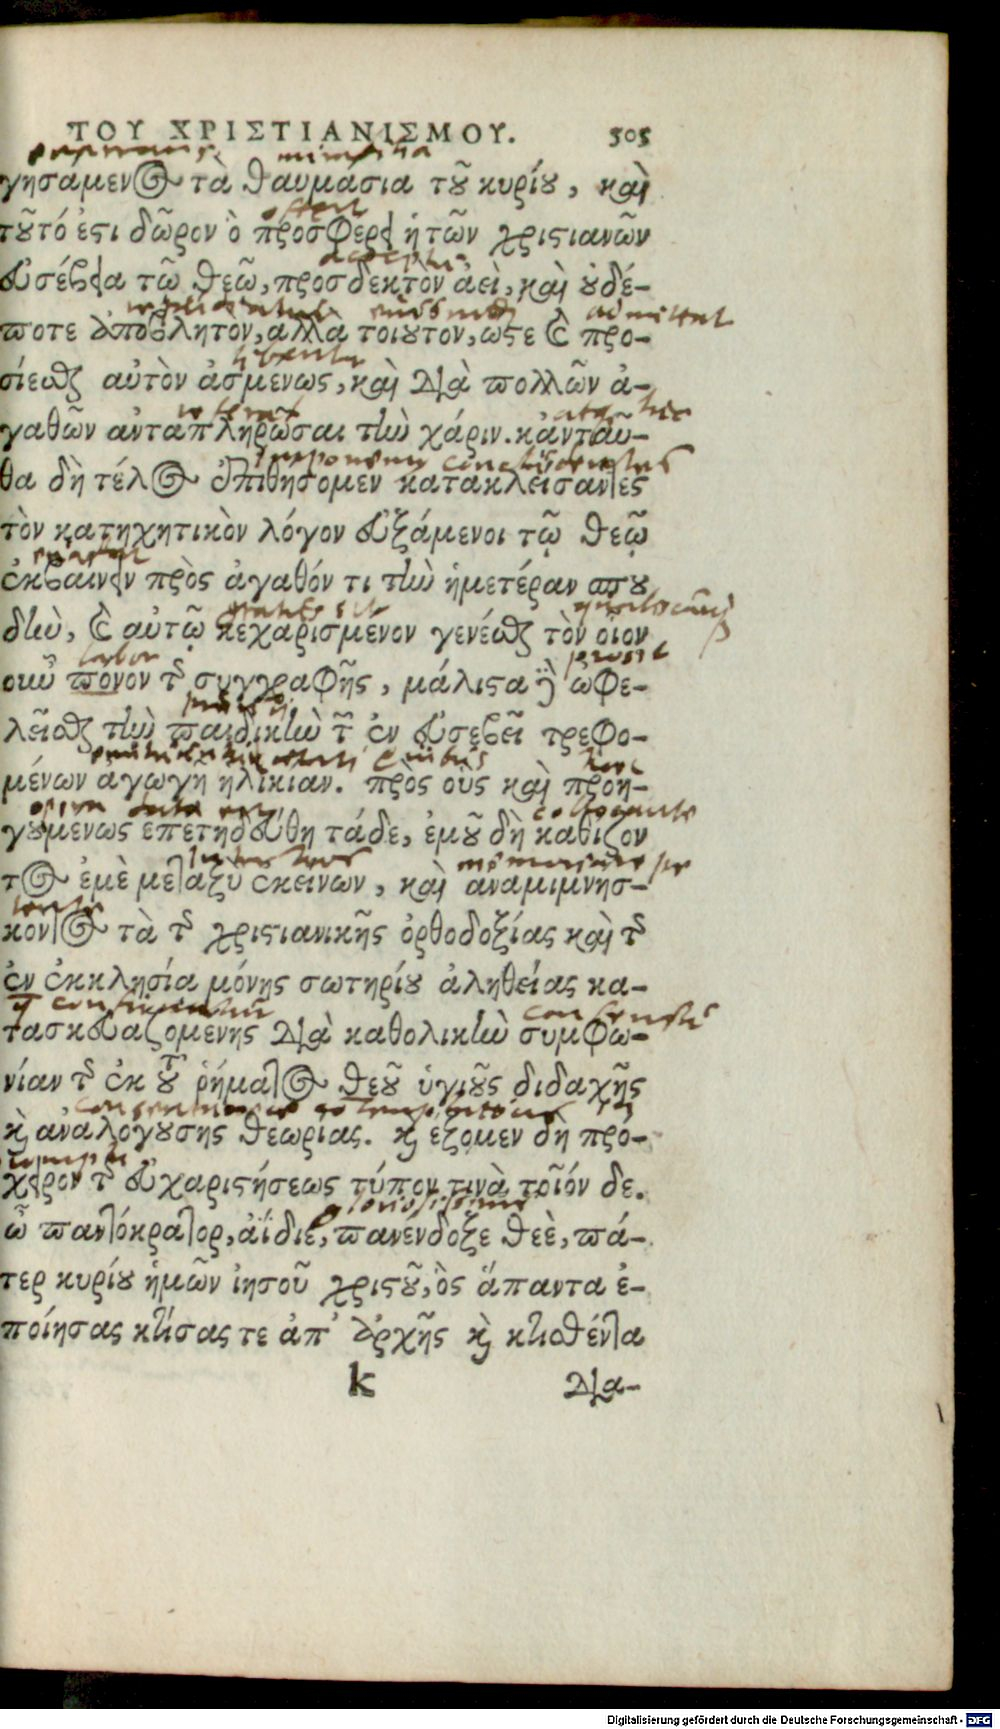 ΤΟΥ ΧΡΙΣΤΙΑΝΙΣΜΟΥ. 505
γησάμενος τὰ θαυμάσια τοῦ κυρίου, καὶ
τοῦτό ἐστι δῶρον ὃ προσφέρει ἡ τῶν χριστιανῶν
offert
εὐσέβεια τῷ θεῷ, προσδεκτὸν ἀεὶ, καὶ οὐδέ-
ποτε ἀπόβλητον, ἀλλὰ τοιοῦτον, ὥστε καὶ προ-
admittat
σίεσθαι αὐτὸν ἀσμένως, καὶ διὰ πολλῶν ἀ-
libenter
γαθῶν ἀνταπληρῶσαι τὴν χάριν. κἀνταῦ-
atq hic
θα δὴ τέλος ἐπιθήσομεν κατακλείσαντες
imponemus
τὸν κατηχητικὸν λόγον εὐξάμενοι τῷ θεῷ
ἐκβαίνειν πρὸς ἀγαθόν τι τὴν ἡμετέραν σπου
δὴν, καὶ αὐτῷ κεχαρισμένον γενέσθαι τὸν οἷον
οὖν πόνον τῆς συγγραφῆς, μάλιστα δὲ ὠφε-
labor prosit
λεῖσθαι τὴν παιδικὴν τῶν ἐν εὐσεβεῖ τρεφο-
μένων ἀγωγῇ ἡλικίαν. πρὸς οὓς καὶ προη-
γουμένως ἐπετηδεύθη τάδε, ἐμοῦ δὴ καθίζον
opera data
τος ἐμὲ μεταξὺ ἐκείνων, καὶ ἀναμιμνήσ-
κοντος τὰ τῆς χριστιανικῆς ὀρθοδοξίας καὶ τῆς
ἐν ἐκκλησίᾳ μόνης σωτηρίου ἀληθείας κα-
τασκευαζομένης διὰ καθολικὴν συμφω-
νίαν τῆς ἐκ τοῦ ῥήματος θεοῦ ὑγιοῦς διδαχῆς
κὶ ἀναλογούσης θεωρίας. κὶ ἕξομεν δὴ πρό-
χειρον τῆς εὐχαριστήσεως τύπον τινὰ τοιόν δε.
ὦ παντόκρατορ, ἀΐδιε, πανένδοξε θεὲ, πά-
τερ κυρίου ἡμῶν ἰησοῦ χριστοῦ, ὃς ἅπαντα ἐ-
ποίησας κτίσας τε ἀπ' ἀρχῆς κὶ κτισθέντα
k δια-
Digitalisierung gefördert durch die Deutsche Forschungsgemeinschaft - DFG